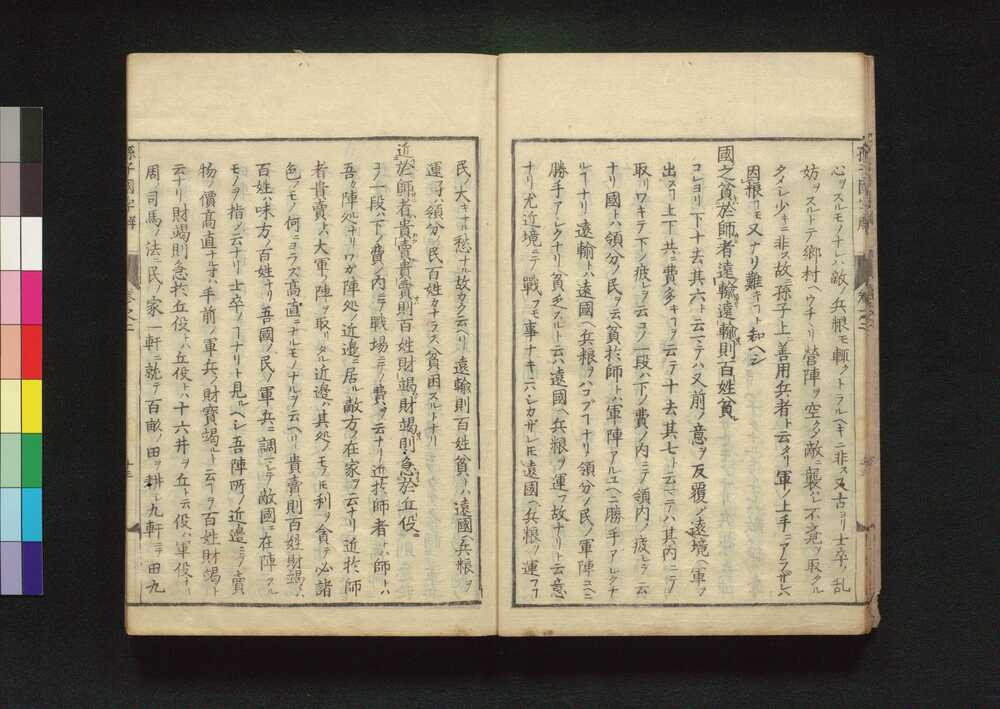 心ヲスルモノナレハ敵ノ兵粮モ輙クトラルヘキニ非ス又古ヨリ士卒ノ乱
妨ヲスルトテ鄕村ヘウチリ營陣ヲ空クシ敵ニ襲ハレ不覚ヲ取タル
タメシ少キニ非ス故ニ孫子上ニ善用兵者ト云タリ軍ノ上手ニアラザレハ
因粮コモ又ナリ難キコト知ヘシ
國之貧於師者遠輸遠輸則百姓貧
コレヨリ下十去其六ト云マテハ又前ノ意ヲ反覆シ遠境ヘ軍ヲ
出スヿ上下共ニ費多キヿヲ云テ十去其七ト云マテハ其内ニテ
取ワキテ下ノ疲レヲ云コノ一段ハ下ノ費ノ内ニテ領内ノ疲レヲ云
ナリ國トハ領分ノ民ヲ云貧於師トハ軍陣アルユヘニ勝手アシクナ
ルヿナリ遠輸トハ遠國ヘ兵粮ヲハコブヿナリ領分ノ民ノ軍陣ユヘニ
勝手アシクナリ貧乏スルト云ハ遠國ヘ兵粮ヲ運フ故ナリト云意
ナリ尤近境ニテ戰フモ事ナキニハシカザレ𪜈遠國ヘ兵粮ヲ運フヿ
民ノ大キナル愁ナル故カク云ヘリ遠輸則百姓貧トハ遠國ヘ兵粮ヲ
運ヘハ領分ノ民百姓カナラス貧困スルトナリ
近於師者貴賣貴賣則百姓財竭財竭則急於丘役
コノ一段ハ下ノ費ノ内ニテ戰場ニテノ費ヲ云ナリ近於師者トハ師トハ
吾カ陣処ナリワカ陣処ノ近邊ニ居ル敵方ノ在家ヲ云ナリ近於師
者貴賣トハ大軍ノ陣ヲ取リタル近邊ハ其処ノモノ𪜈利ヲ貪テ必諸
色ノモノ何ニヨラス高直ニナルモノナルヲ云ヘリ貴賣則百姓財竭トハ
百姓ハ味方ノ百姓ナリ吾國ノ民ノ軍兵ニ調ラレテ敵國ニ在陣スル
モノヲ指シ云ナリ士卒ノヿナリト見ルヘシ吾陣所ノ近邊ニテ賣
物ノ價高直ナルオハ手前ノ軍兵ノ財寶竭ルト云ヿヲ百姓財竭ト
云ナリ財竭則急於丘役トハ丘役トハ十六井ヲ丘ト云役ハ軍役ナリ
周ノ司馬ノ法ニ民ノ家一軒ニ就テ百畝ノ田ヲ耕ト九軒ニテ田九